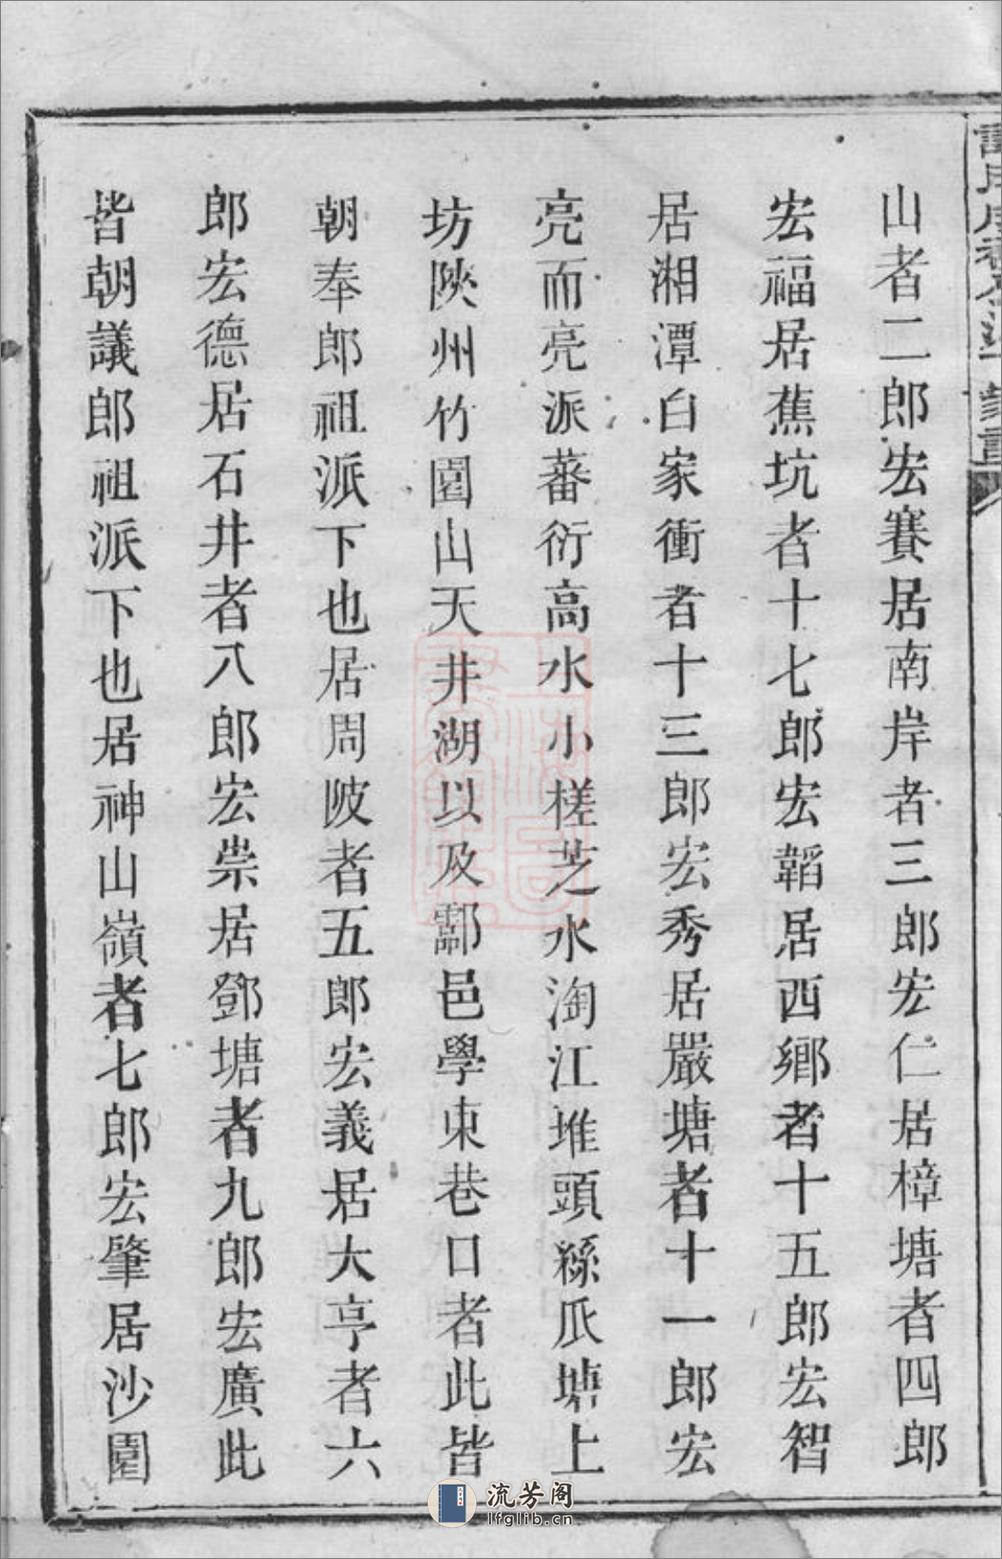 山者二郎宏賽居南岸者三郎宏仁居樟塘者四郎
宏福居蕉坑者十七郎宏韜居西鄉者十五郎宏智
居湘潭白家衝者十三郎宏秀居嚴塘者十一郎宏
亮而亮派蕃衍高水小槎芝水淘江堆頭絲瓜塘上
坊陜州竹園山天井湖以及酃邑學東巷口者此皆
朝奉郎祖派下也居周陂者五郎宏義居大亨者六
郎宏德居石井者八郎宏崇居鄧塘者九郎宏廣此
皆朝議郎祖派下也居神山嶺者七郎宏肇居沙園
流芳阁
lfglib.cn